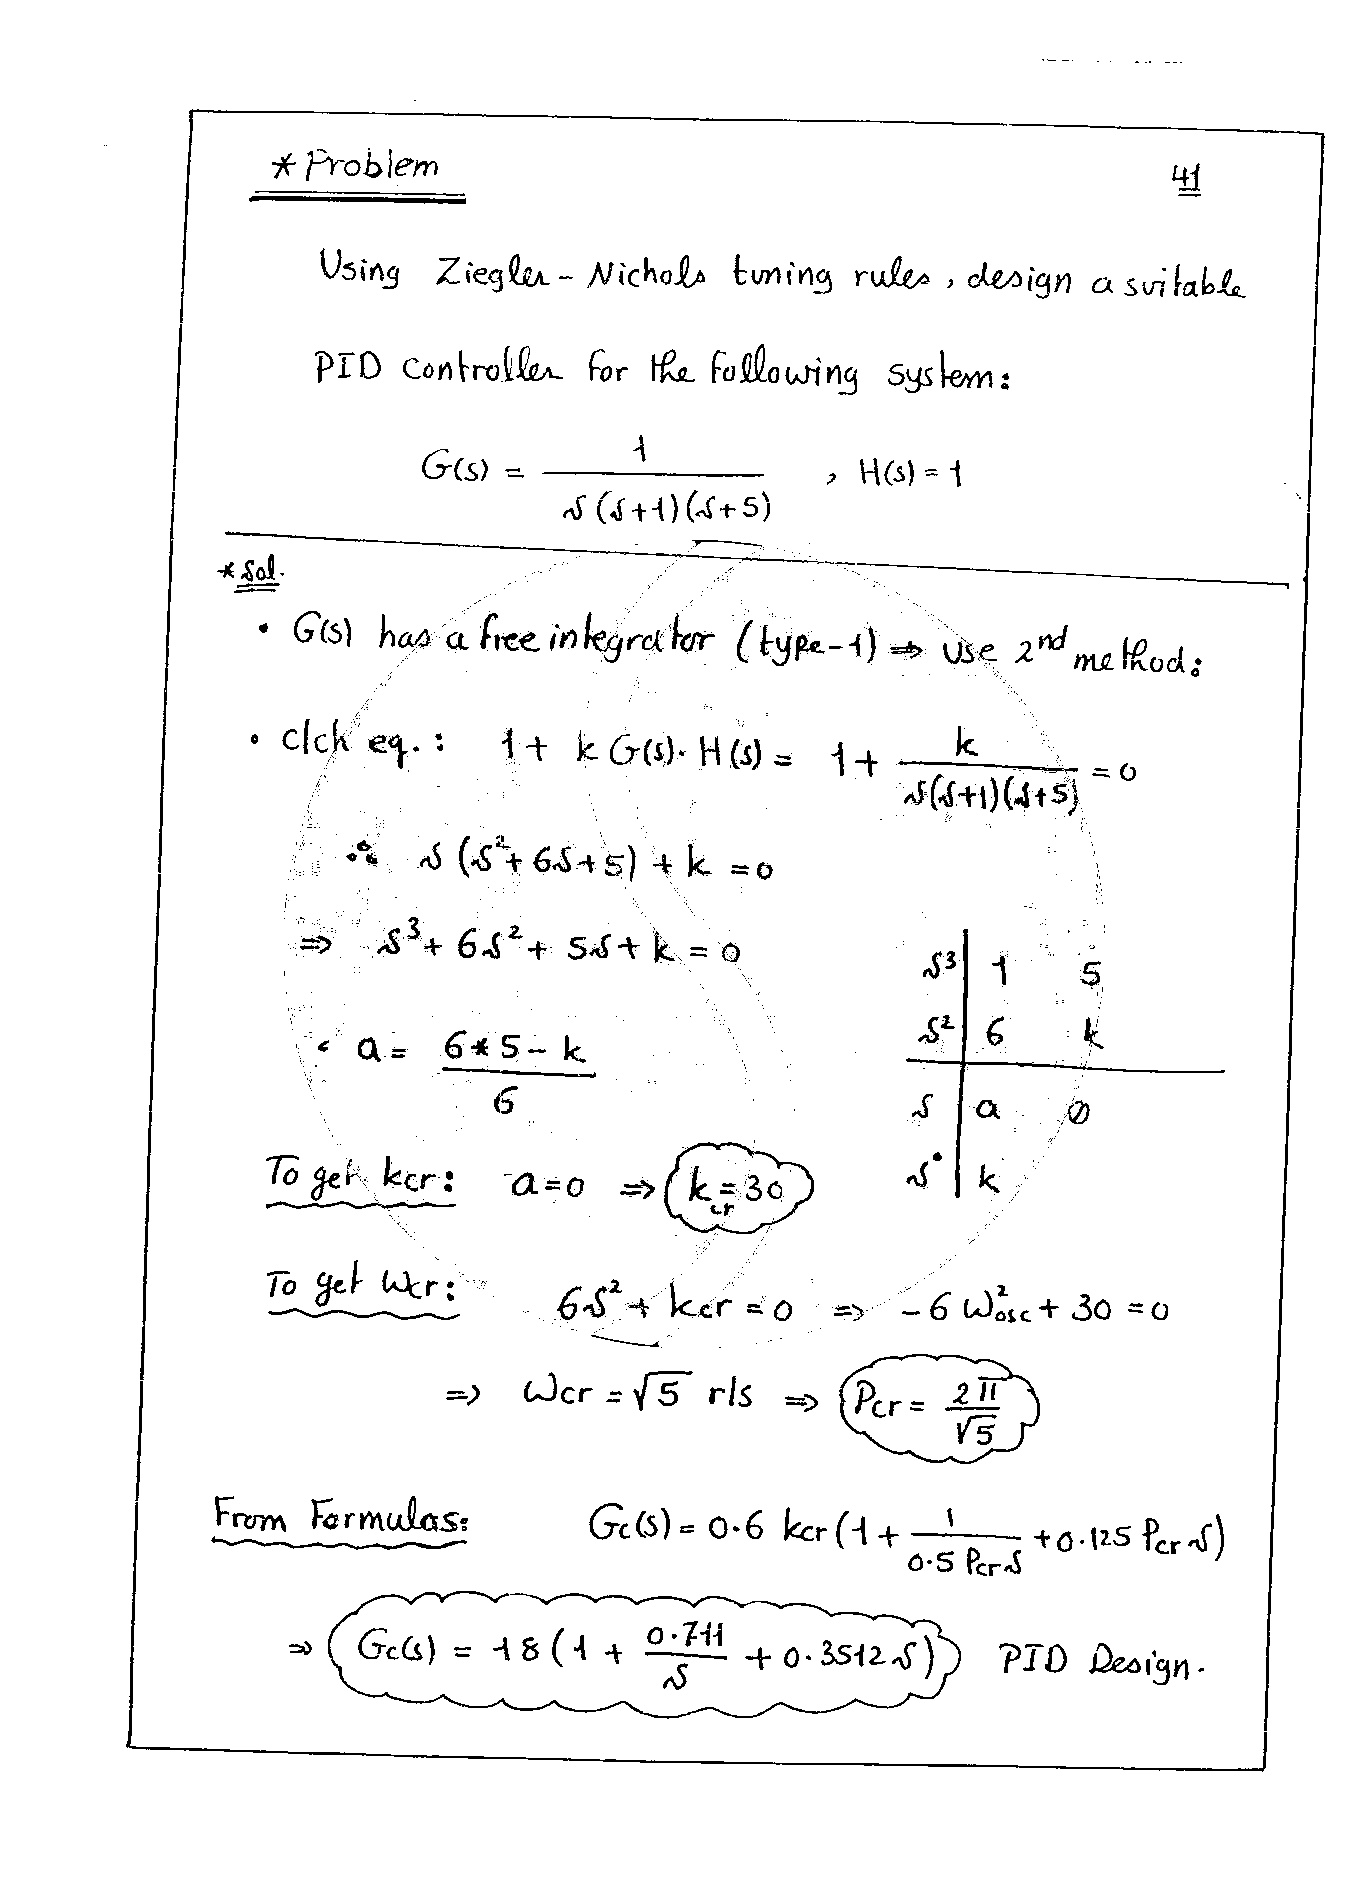 * Problem
41
Using Ziegler-Nichols tuning rules, design a suitable
PID controller for the following system:
G(s) = 1 / s(s+1)(s+5) , H(s) = 1
* Sol.
• G(s) has a free integrator (type-1) ⇒ use 2nd method:
• c/ch eq. : 1 + k G(s)·H(s) = 1 + k / s(s+1)(s+5) = 0
∴ s(s²+6s+5) + k = 0
⇒ s³ + 6s² + 5s + k = 0
s³ | 1 5
s² | 6 k
s | a 0
s° | k
• a = 6*5 - k / 6
To get kcr: a = 0 ⇒ kcr = 30
To get Wcr: 6s² + kcr = 0 ⇒ -6 W²osc + 30 = 0
⇒ Wcr = √5 r/s ⇒ Pcr = 2π / √5
From Formulas: Gc(s) = 0.6 kcr (1 + 1 / 0.5 Pcr s + 0.125 Pcr s)
⇒ Gc(s) = 18 (1 + 0.711 / s + 0.3512 s) PID Design.